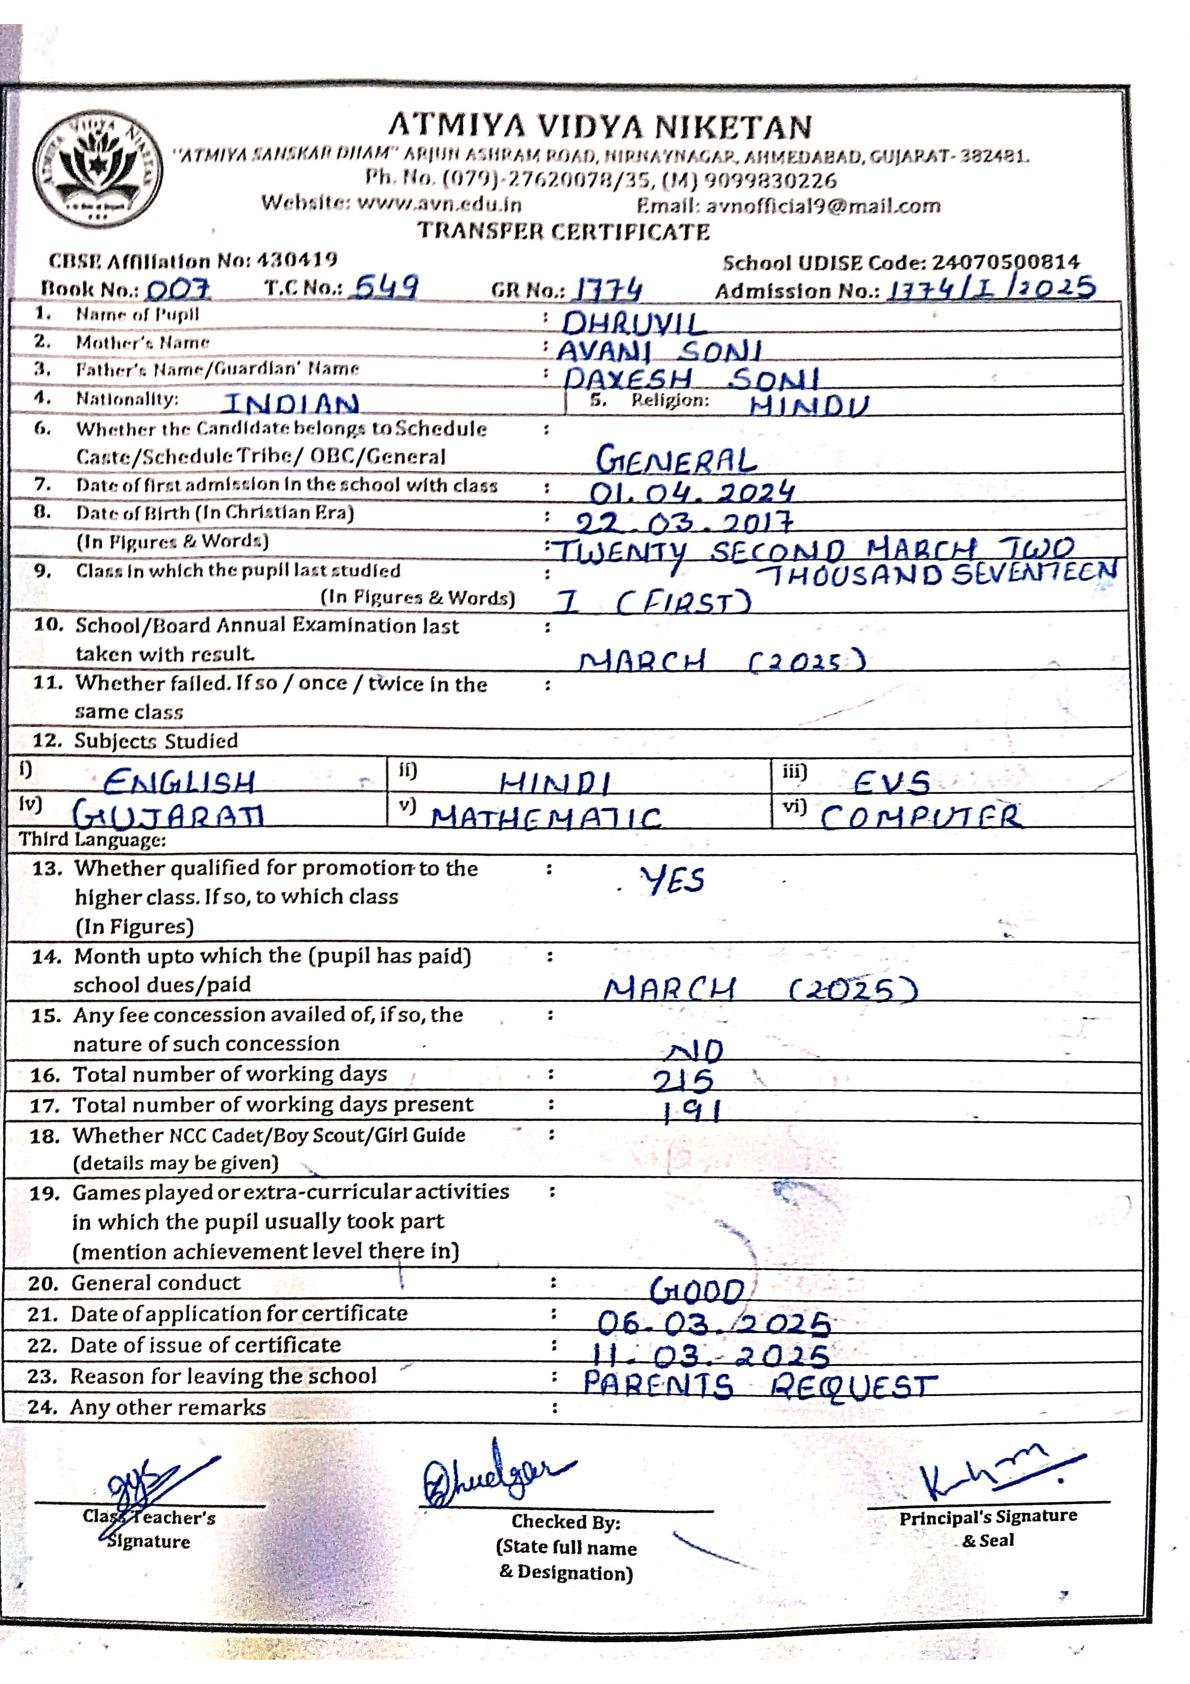 ATMIYA VIDYA NIKETAN
"ATMIYA SANSKAR DHAM" ARJUN ASHRAM ROAD, NIRNAYNAGAR, AHMEDABAD, GUJARAT- 382481.
Ph. No. (079)-27620078/35, (M) 9099830226
Website: www.avn.edu.in Email: avnofficial9@mail.com
TRANSFER CERTIFICATE
CBSE Affiliation No: 430419 School UDISE Code: 24070500814
Book No.: 007 T.C No.: 549 GR No.: 1774 Admission No.: 1774/I/2025
1. Name of Pupil : DHRUVIL
2. Mother's Name : AVANI SONI
3. Father's Name/Guardian' Name : DAXESH SONI
4. Nationality: INDIAN 5. Religion: HINDU
6. Whether the Candidate belongs to Schedule :
Caste/Schedule Tribe/ OBC/General GENERAL
7. Date of first admission in the school with class : 01.04.2024
8. Date of Birth (In Christian Era) : 22.03.2017
(In Figures & Words) : TWENTY SECOND MARCH TWO
9. Class in which the pupil last studied : THOUSAND SEVENTEEN
(In Figures & Words) I (FIRST)
10. School/Board Annual Examination last :
taken with result. MARCH (2025)
11. Whether failed. If so / once / twice in the :
same class
12. Subjects Studied
i) ENGLISH ii) HINDI iii) EVS
iv) GUJARATI v) MATHEMATIC vi) COMPUTER
Third Language:
13. Whether qualified for promotion to the : YES
higher class. If so, to which class
(In Figures)
14. Month upto which the (pupil has paid) :
school dues/paid MARCH (2025)
15. Any fee concession availed of, if so, the :
nature of such concession NO
16. Total number of working days : 215
17. Total number of working days present : 191
18. Whether NCC Cadet/Boy Scout/Girl Guide :
(details may be given)
19. Games played or extra-curricular activities :
in which the pupil usually took part
(mention achievement level there in)
20. General conduct : GOOD
21. Date of application for certificate : 06.03.2025
22. Date of issue of certificate : 11.03.2025
23. Reason for leaving the school : PARENTS REQUEST
24. Any other remarks :
Class Teacher's
Signature
Checked By:
(State full name
& Designation)
Principal's Signature
& Seal